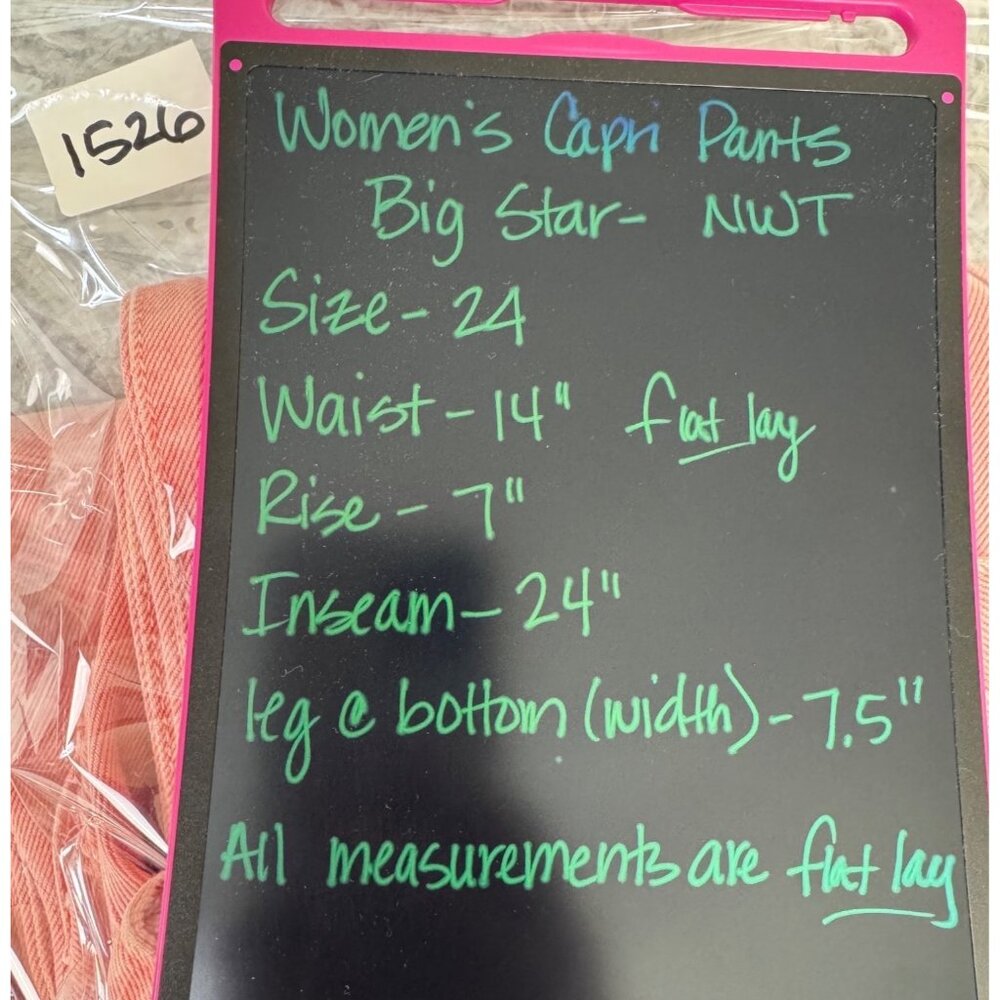 1526
Women's Capri Pants
Big Star- NWT
Size - 24
Waist - 14" flat lay
Rise - 7"
Inseam - 24"
leg @ bottom (width) - 7.5"
All measurements are flat lay